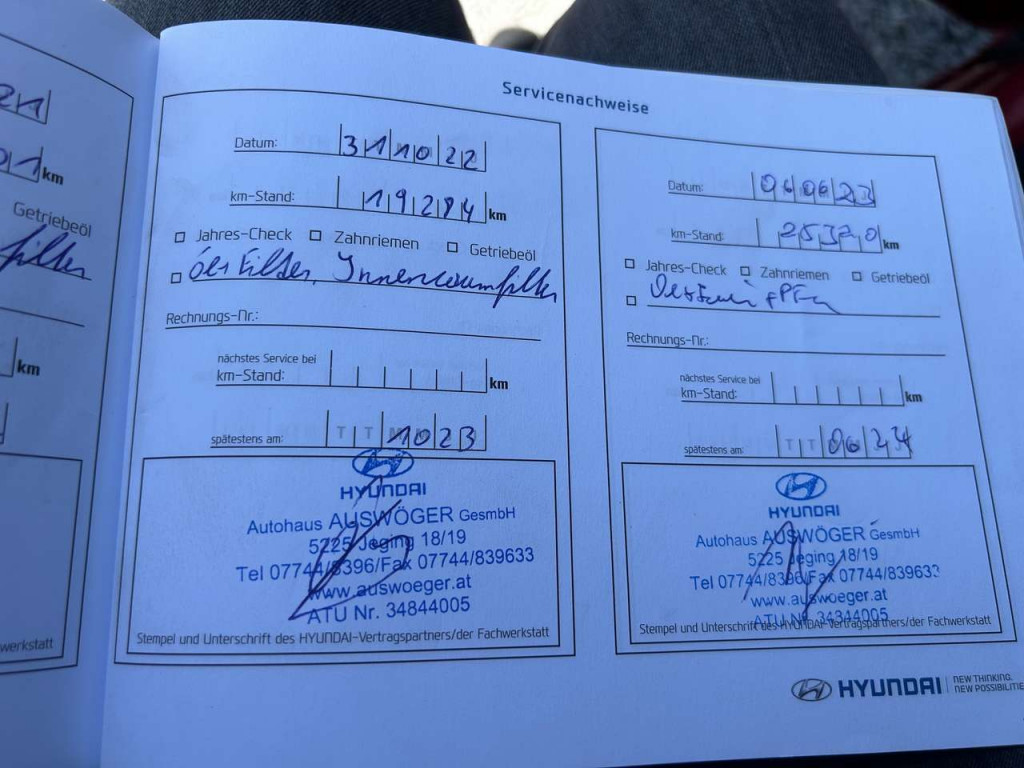 21
01 km
Getriebeöl
filter
km
werkstatt
Servicenachweise
Datum: 311022
km-Stand: 19284 km
Jahres-Check Zahnriemen Getriebeöl
Öl Filter, Innenraumfilter
Rechnungs-Nr.:
nächstes Service bei
km-Stand: km
spätestens am: TT 1023
HYUNDAI
Autohaus AUSWÖGER GesmbH
5225 Jeging 18/19
Tel 07744/8396/Fax 07744/839633
www.auswoeger.at
ATU Nr. 34844005
Stempel und Unterschrift des HYUNDAI-Vertragspartners/der Fachwerkstatt
Datum: 060623
km-Stand: 25320 km
Jahres-Check Zahnriemen Getriebeöl
Rechnungs-Nr.:
nächstes Service bei
km-Stand: km
spätestens am: TT 0624
HYUNDAI
Autohaus AUSWÖGER GesmbH
5225 Jeging 18/19
Tel 07744/8396/Fax 07744/839633
www.auswoeger.at
ATU Nr. 34844005
Stempel und Unterschrift des HYUNDAI-Vertragspartners/der Fachwerkstatt
HYUNDAI NEW THINKING.
NEW POSSIBILITIE